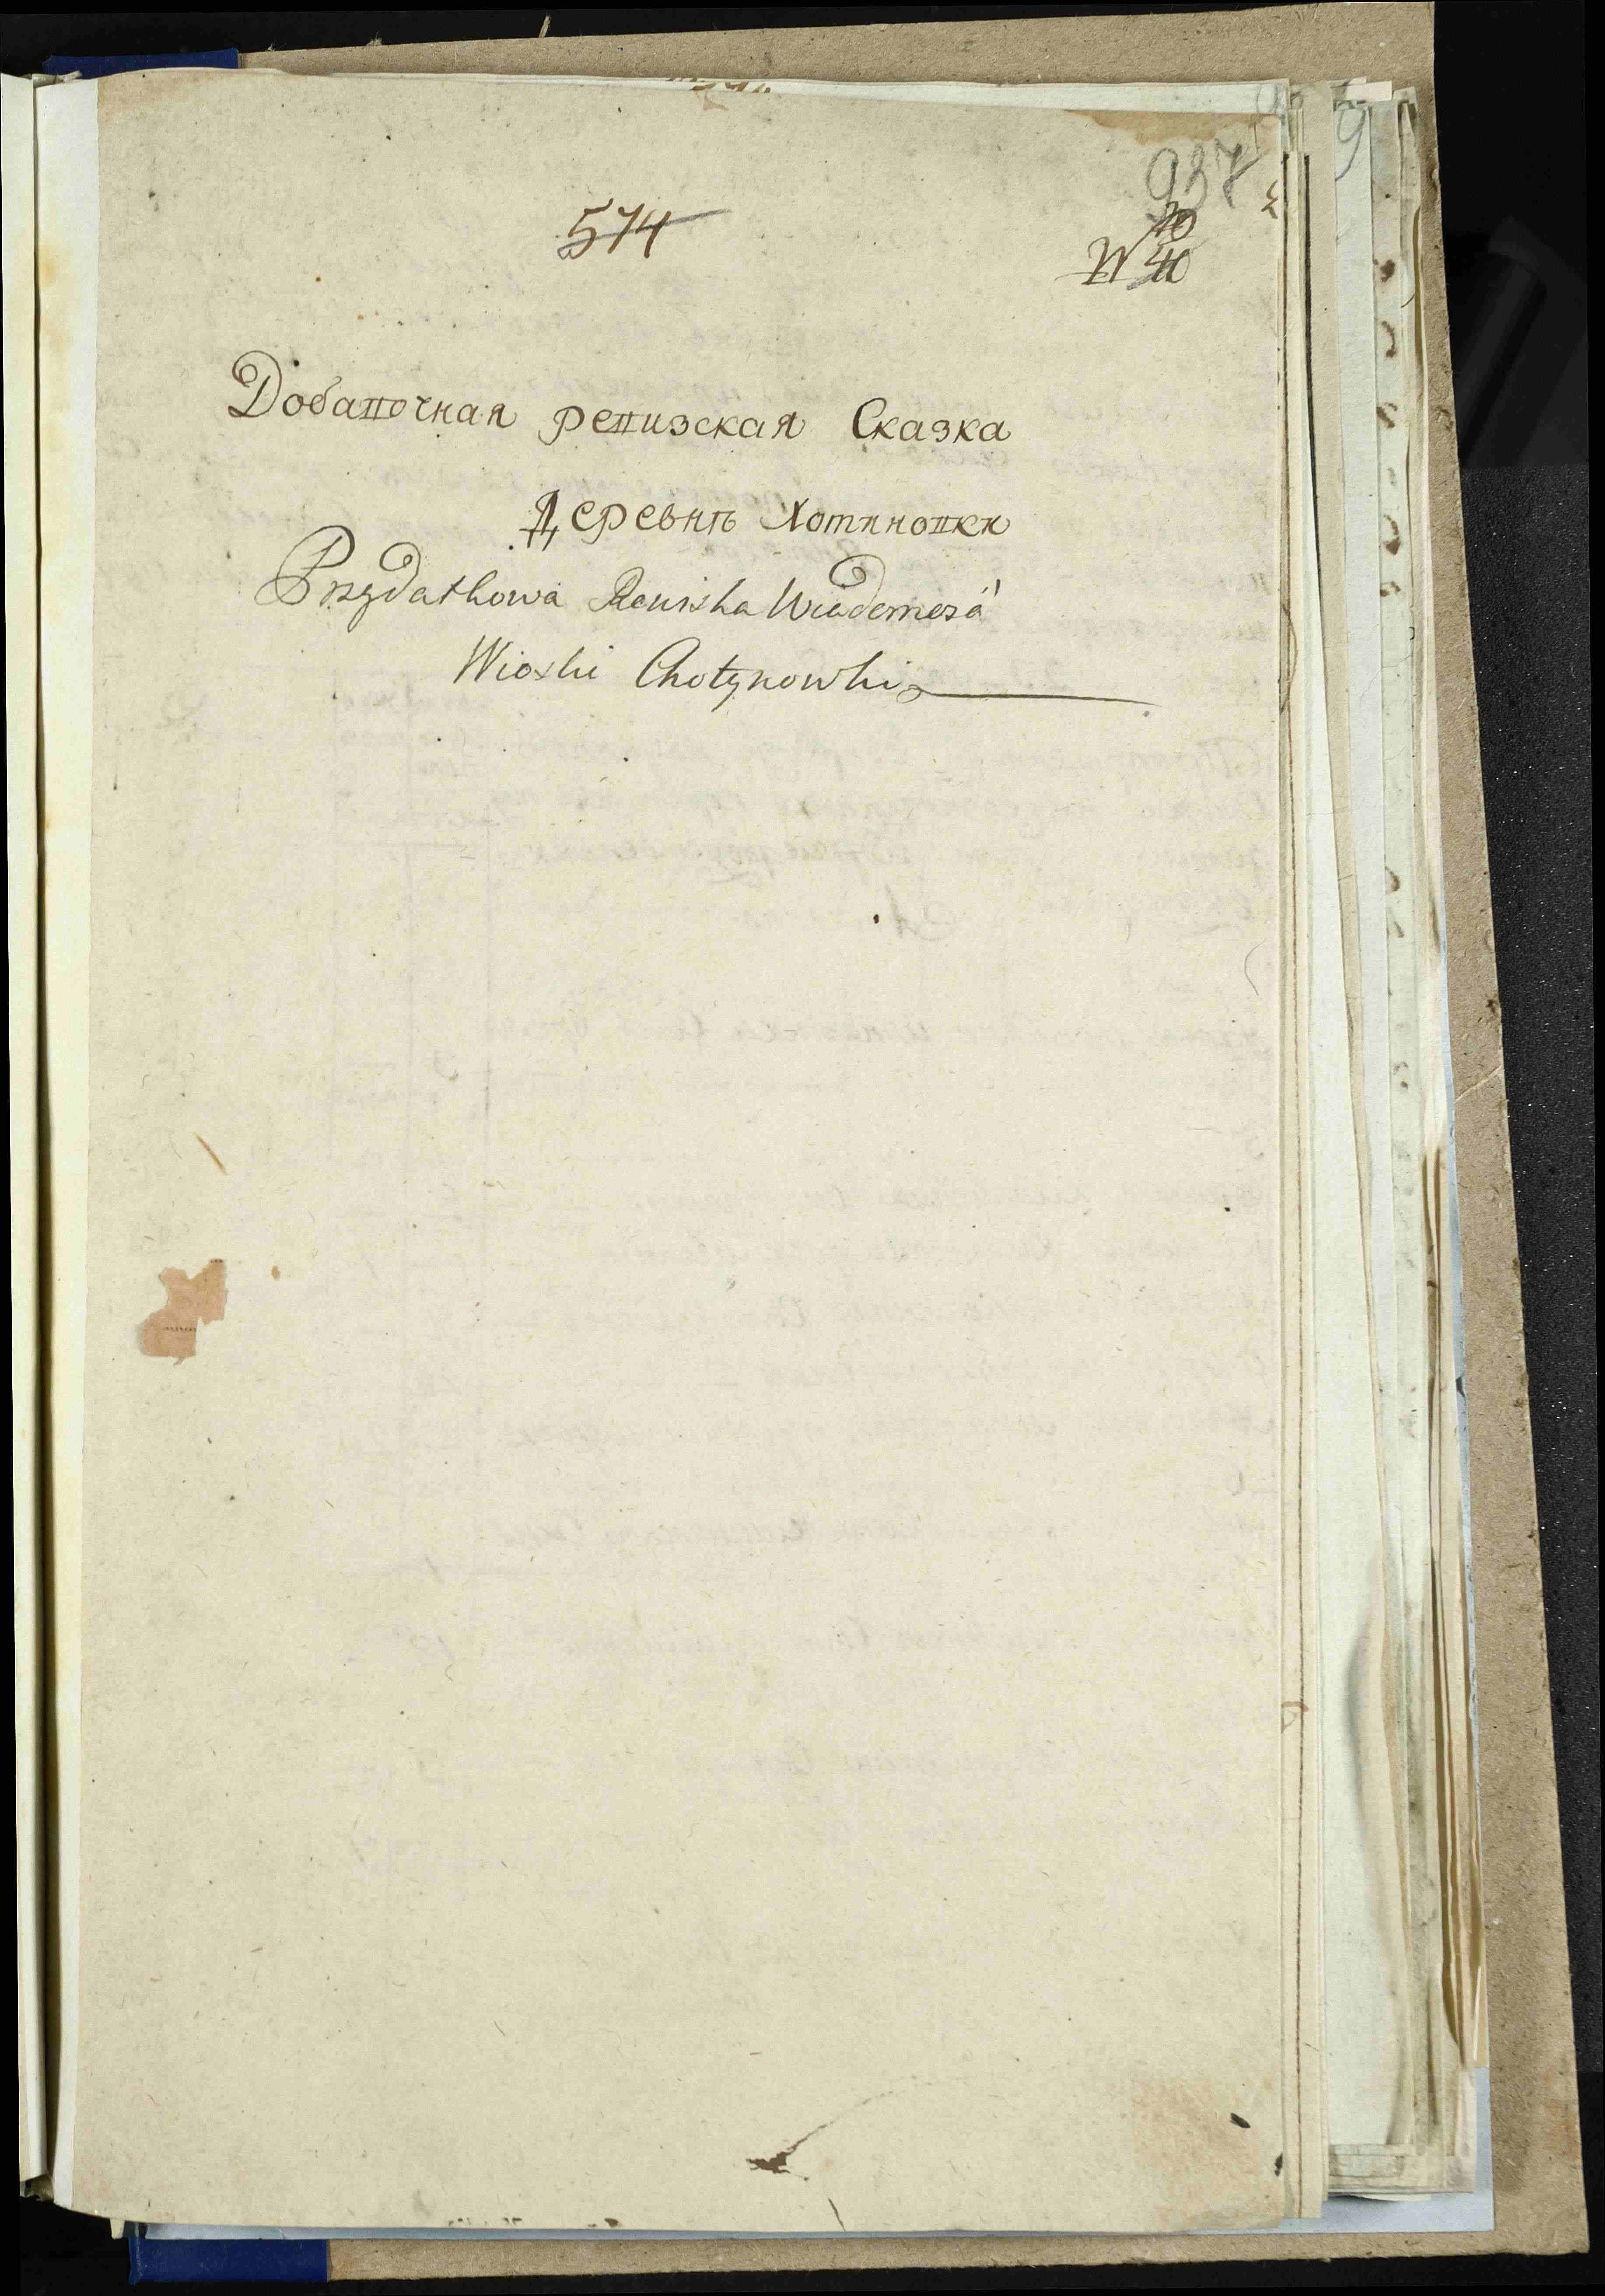 937
574
70
N 40
Добавочная ревизская Сказка
Деревнѣ Хотиновки
Przydatkowa Rewiska Wiadomość
Wioski Chotynowki